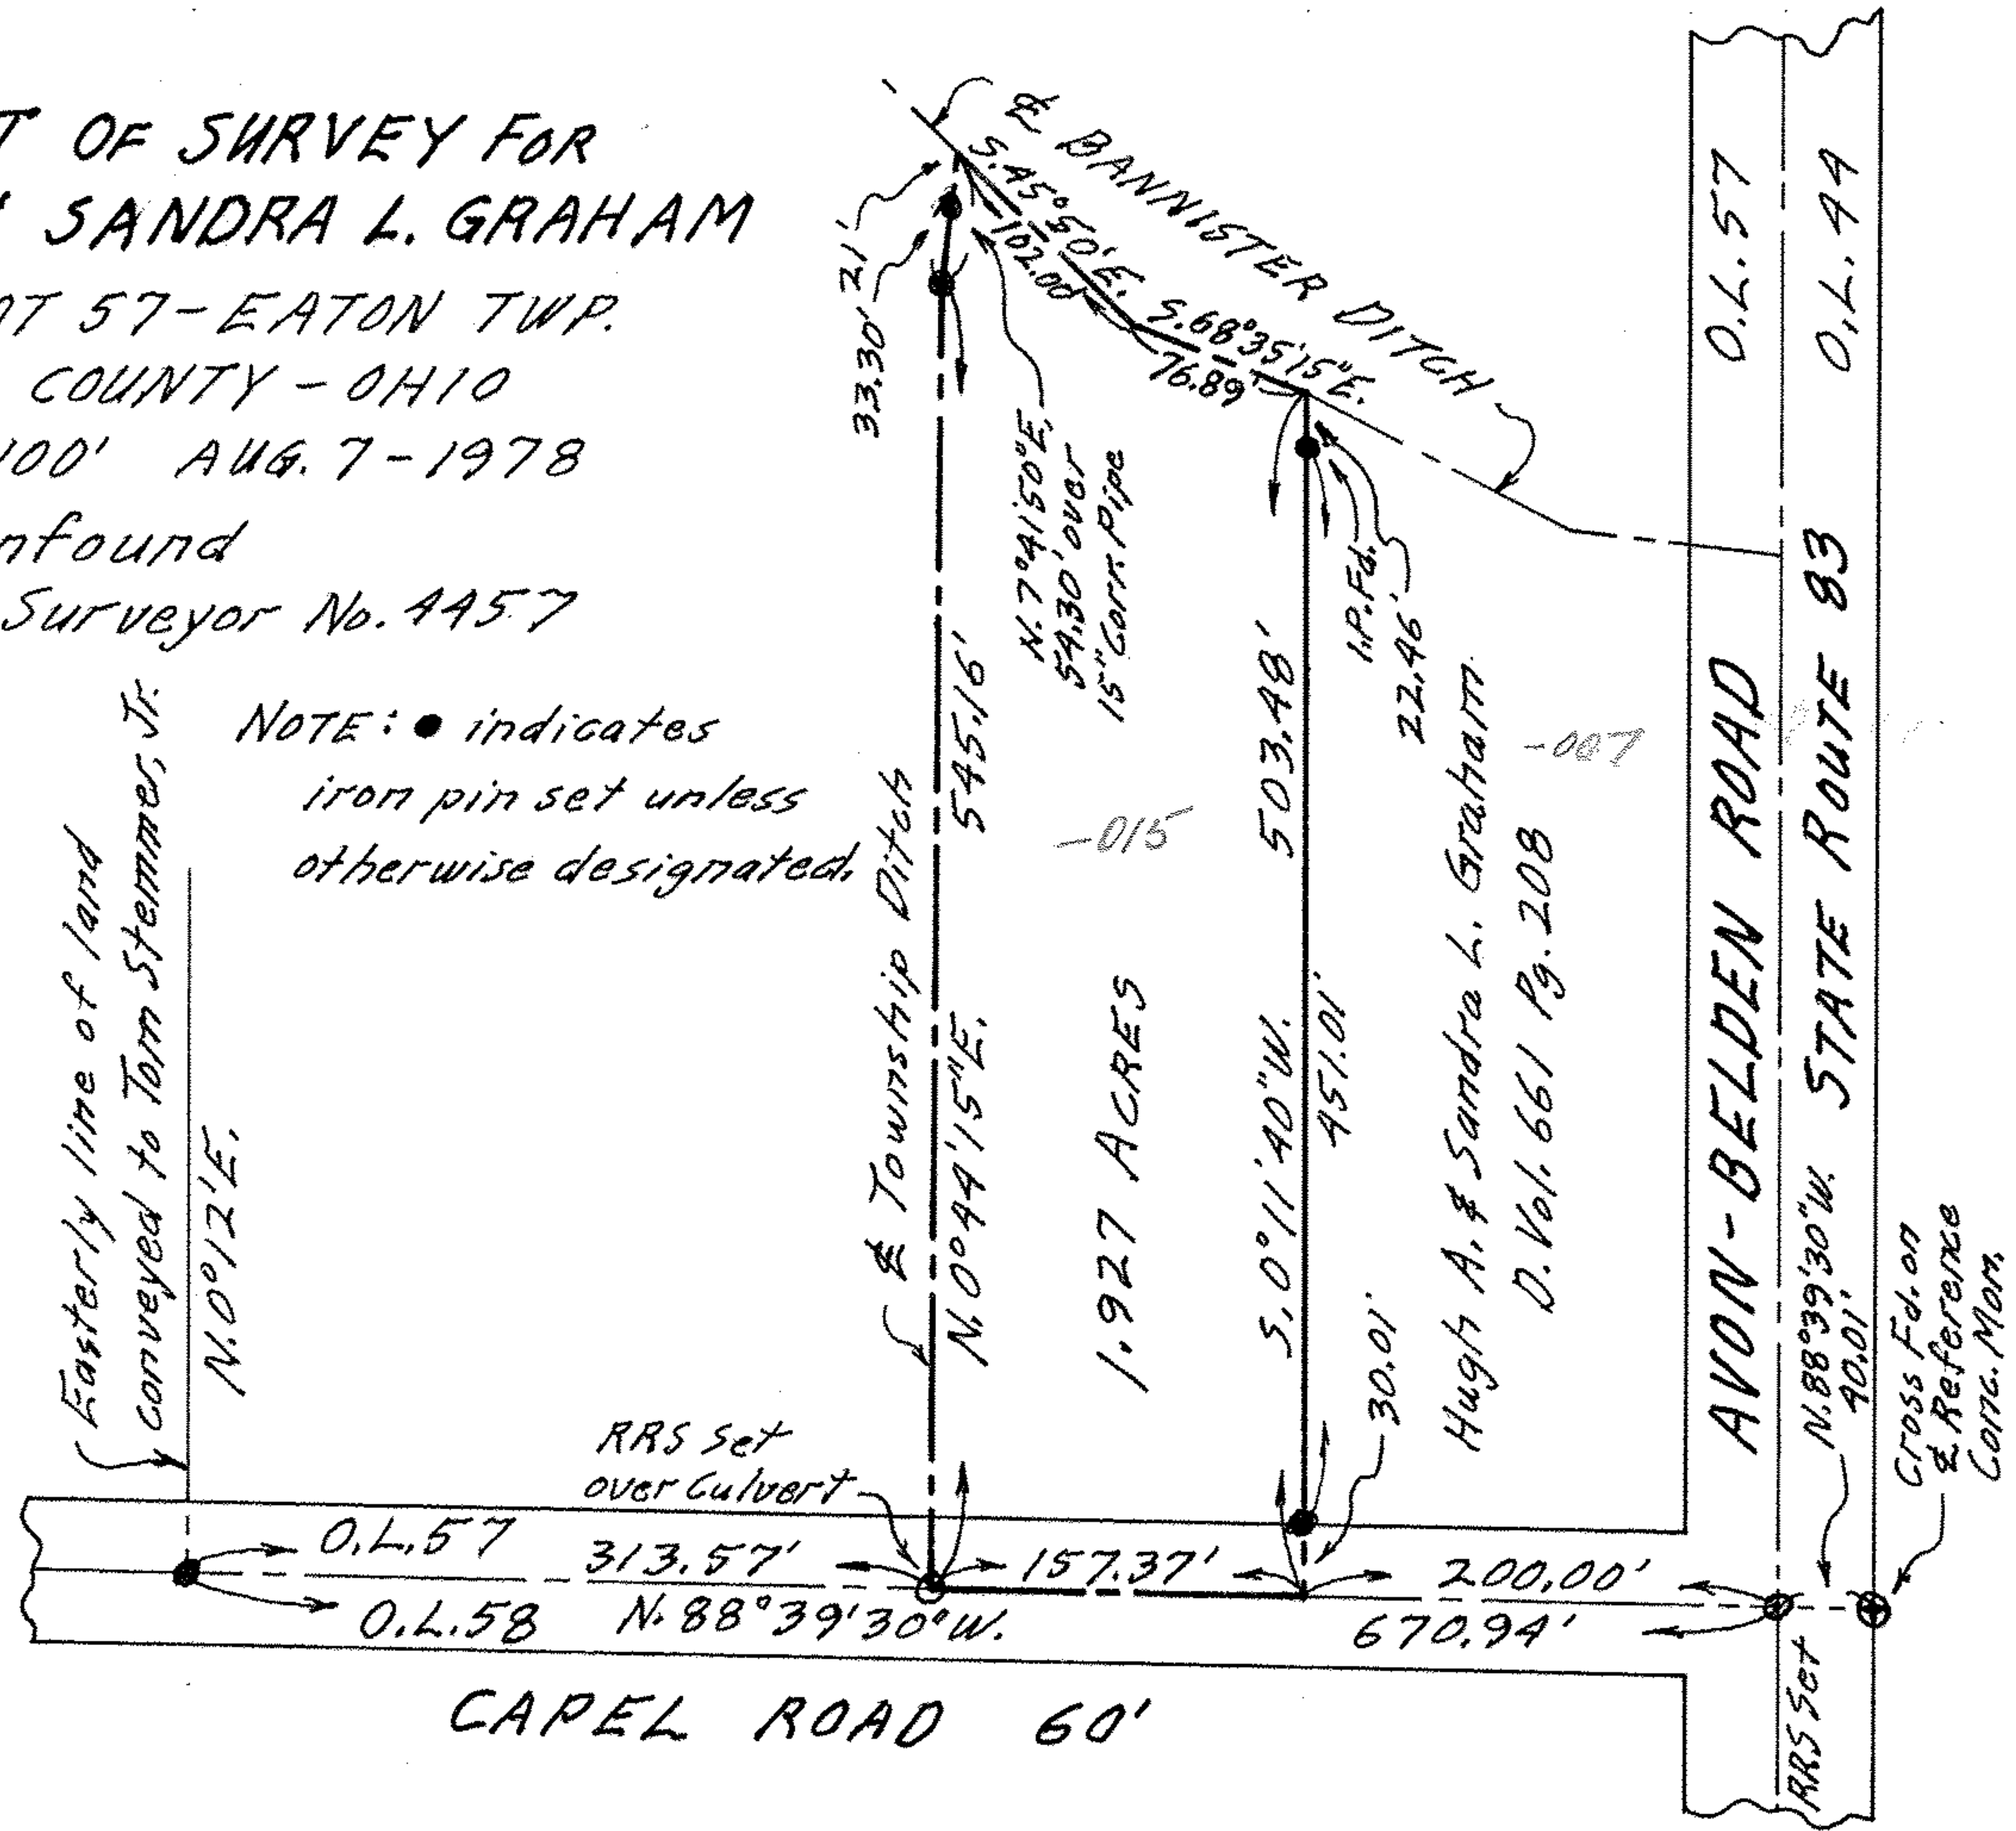 T OF SURVEY FOR
SANDRA L. GRAHAM
OT 57-EATON TWP.
COUNTY - OHIO
100' AUG. 7-1978
nfound
Surveyor No. 4457
NOTE: ● indicates
iron pin set unless
otherwise designated.
Easterly line of land
conveyed to Tom Stemmer, Jr.
N.0°12'E.
℄ BANNISTER DITCH
S.45°50'E.
102.00
S.68°35'15"E.
76.89
21'
33.30'
N.7°41'50"E,
54.30' over
15" Corr. Pipe
℄ Township Ditch
545.16'
N.0°44'15"E.
-015
1.927 ACRES
503.48'
S.0°11'40"W.
451.01'
I.P.Fd.
22.46'
30.01'
-007
Hugh A. & Sandra L. Graham
D. Vol. 661 Pg. 208
O.L.57
O.L.44
AVON-BELDEN ROAD
STATE ROUTE 83
N.88°39'30"W.
40.01'
Cross Fd. on
℄ Reference
Conc. Mon.
RRS Set
over Culvert
O.L.57
313.57'
157.37'
200.00'
O.L.58
N.88°39'30"W.
670.94'
RRS Set
CAPEL ROAD 60'